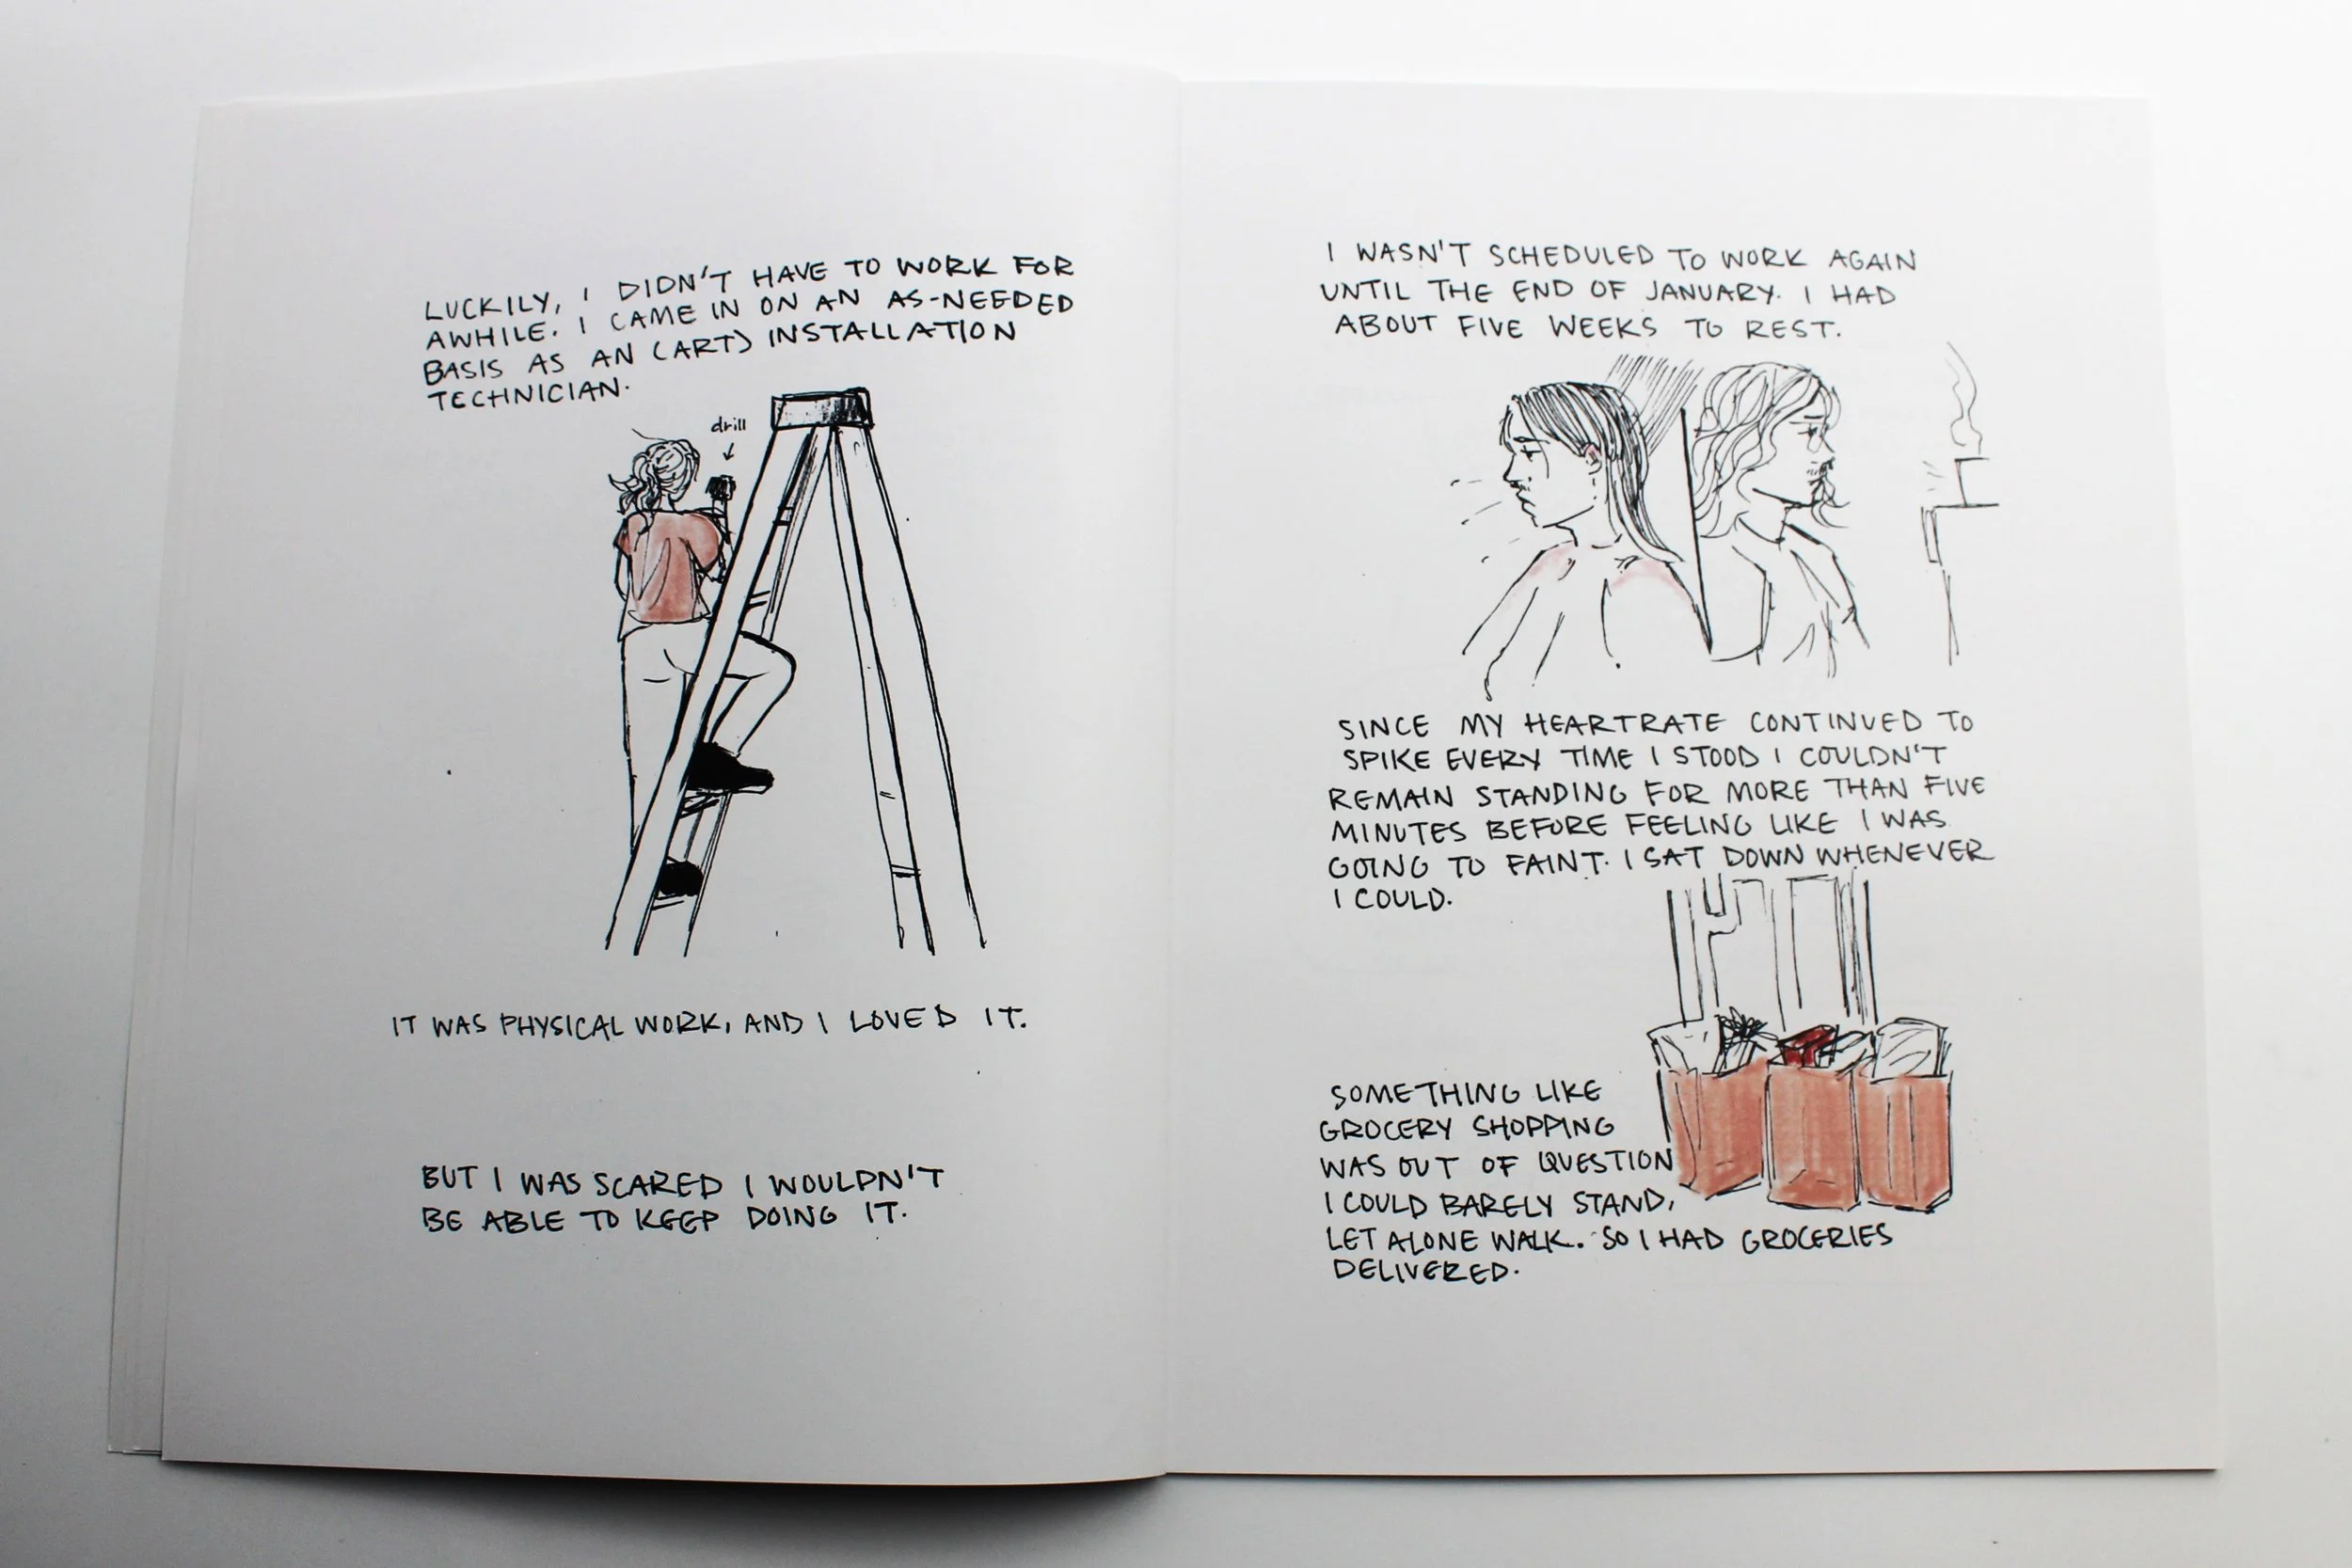 LUCKILY, I DIDN'T HAVE TO WORK FOR
AWHILE. I CAME IN ON AN AS-NEEDED
BASIS AS AN (ART) INSTALLATION
TECHNICIAN.
drill
IT WAS PHYSICAL WORK, AND I LOVED IT.
BUT I WAS SCARED I WOULDN'T
BE ABLE TO KEEP DOING IT.
I WASN'T SCHEDULED TO WORK AGAIN
UNTIL THE END OF JANUARY. I HAD
ABOUT FIVE WEEKS TO REST.
SINCE MY HEARTRATE CONTINUED TO
SPIKE EVERY TIME I STOOD I COULDN'T
REMAIN STANDING FOR MORE THAN FIVE
MINUTES BEFORE FEELING LIKE I WAS
GOING TO FAINT. I SAT DOWN WHENEVER
I COULD.
SOMETHING LIKE
GROCERY SHOPPING
WAS OUT OF QUESTION
I COULD BARELY STAND,
LET ALONE WALK. SO I HAD GROCERIES
DELIVERED.